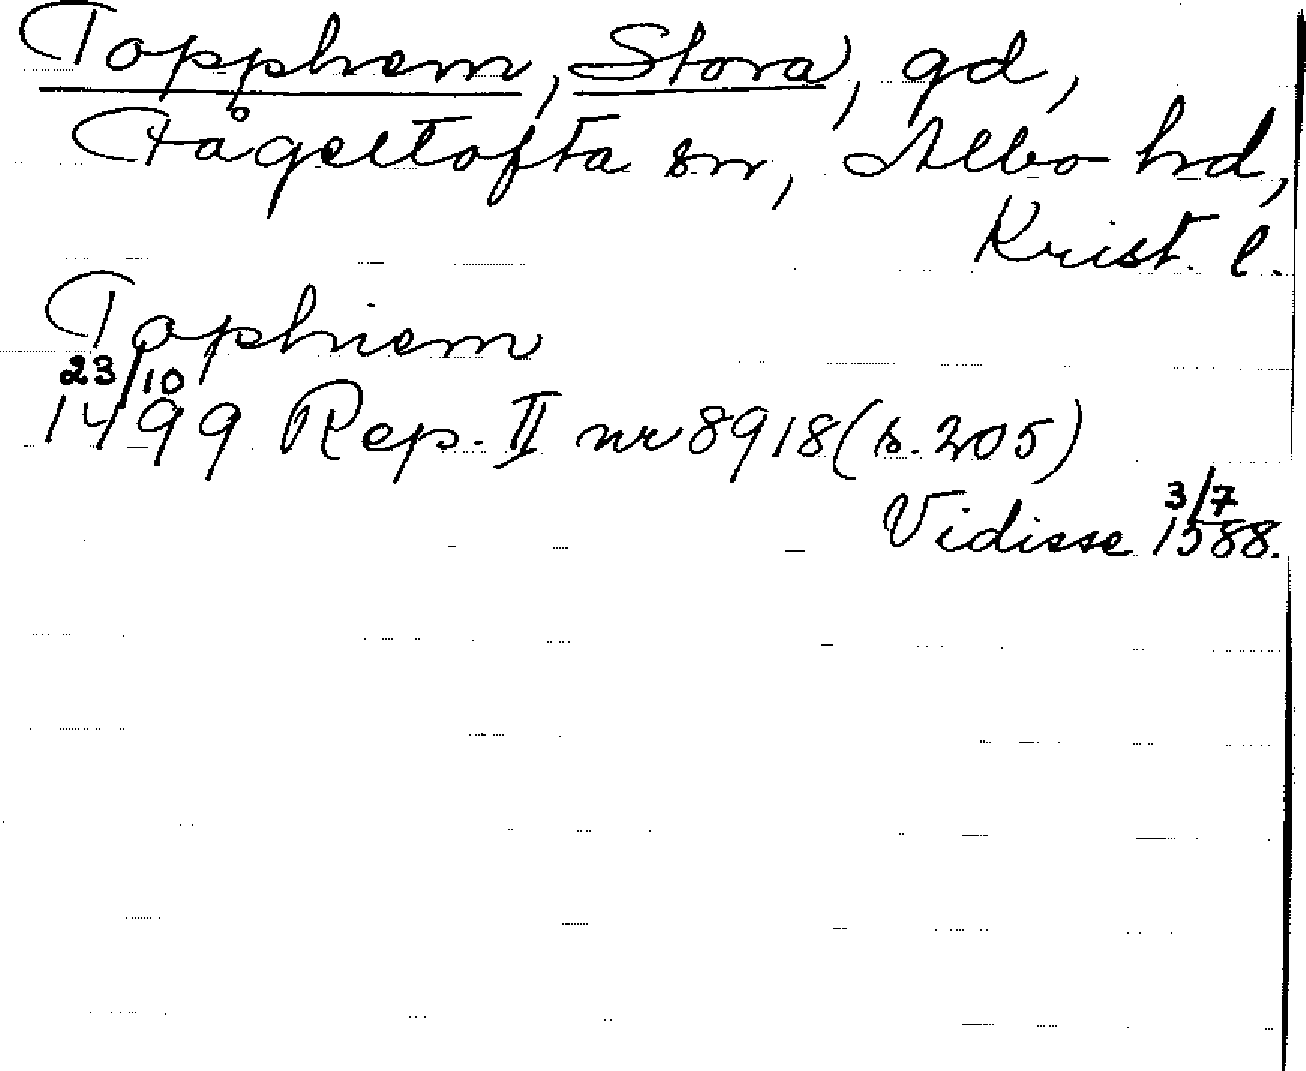 Topphem, Stora, gd,
Fågeltofta sn, Albo hd,
Krist. l.
Tophiem
23/10 1499 Rep. II nr 8918 (s. 205)
Vidisse 3/7 1588.